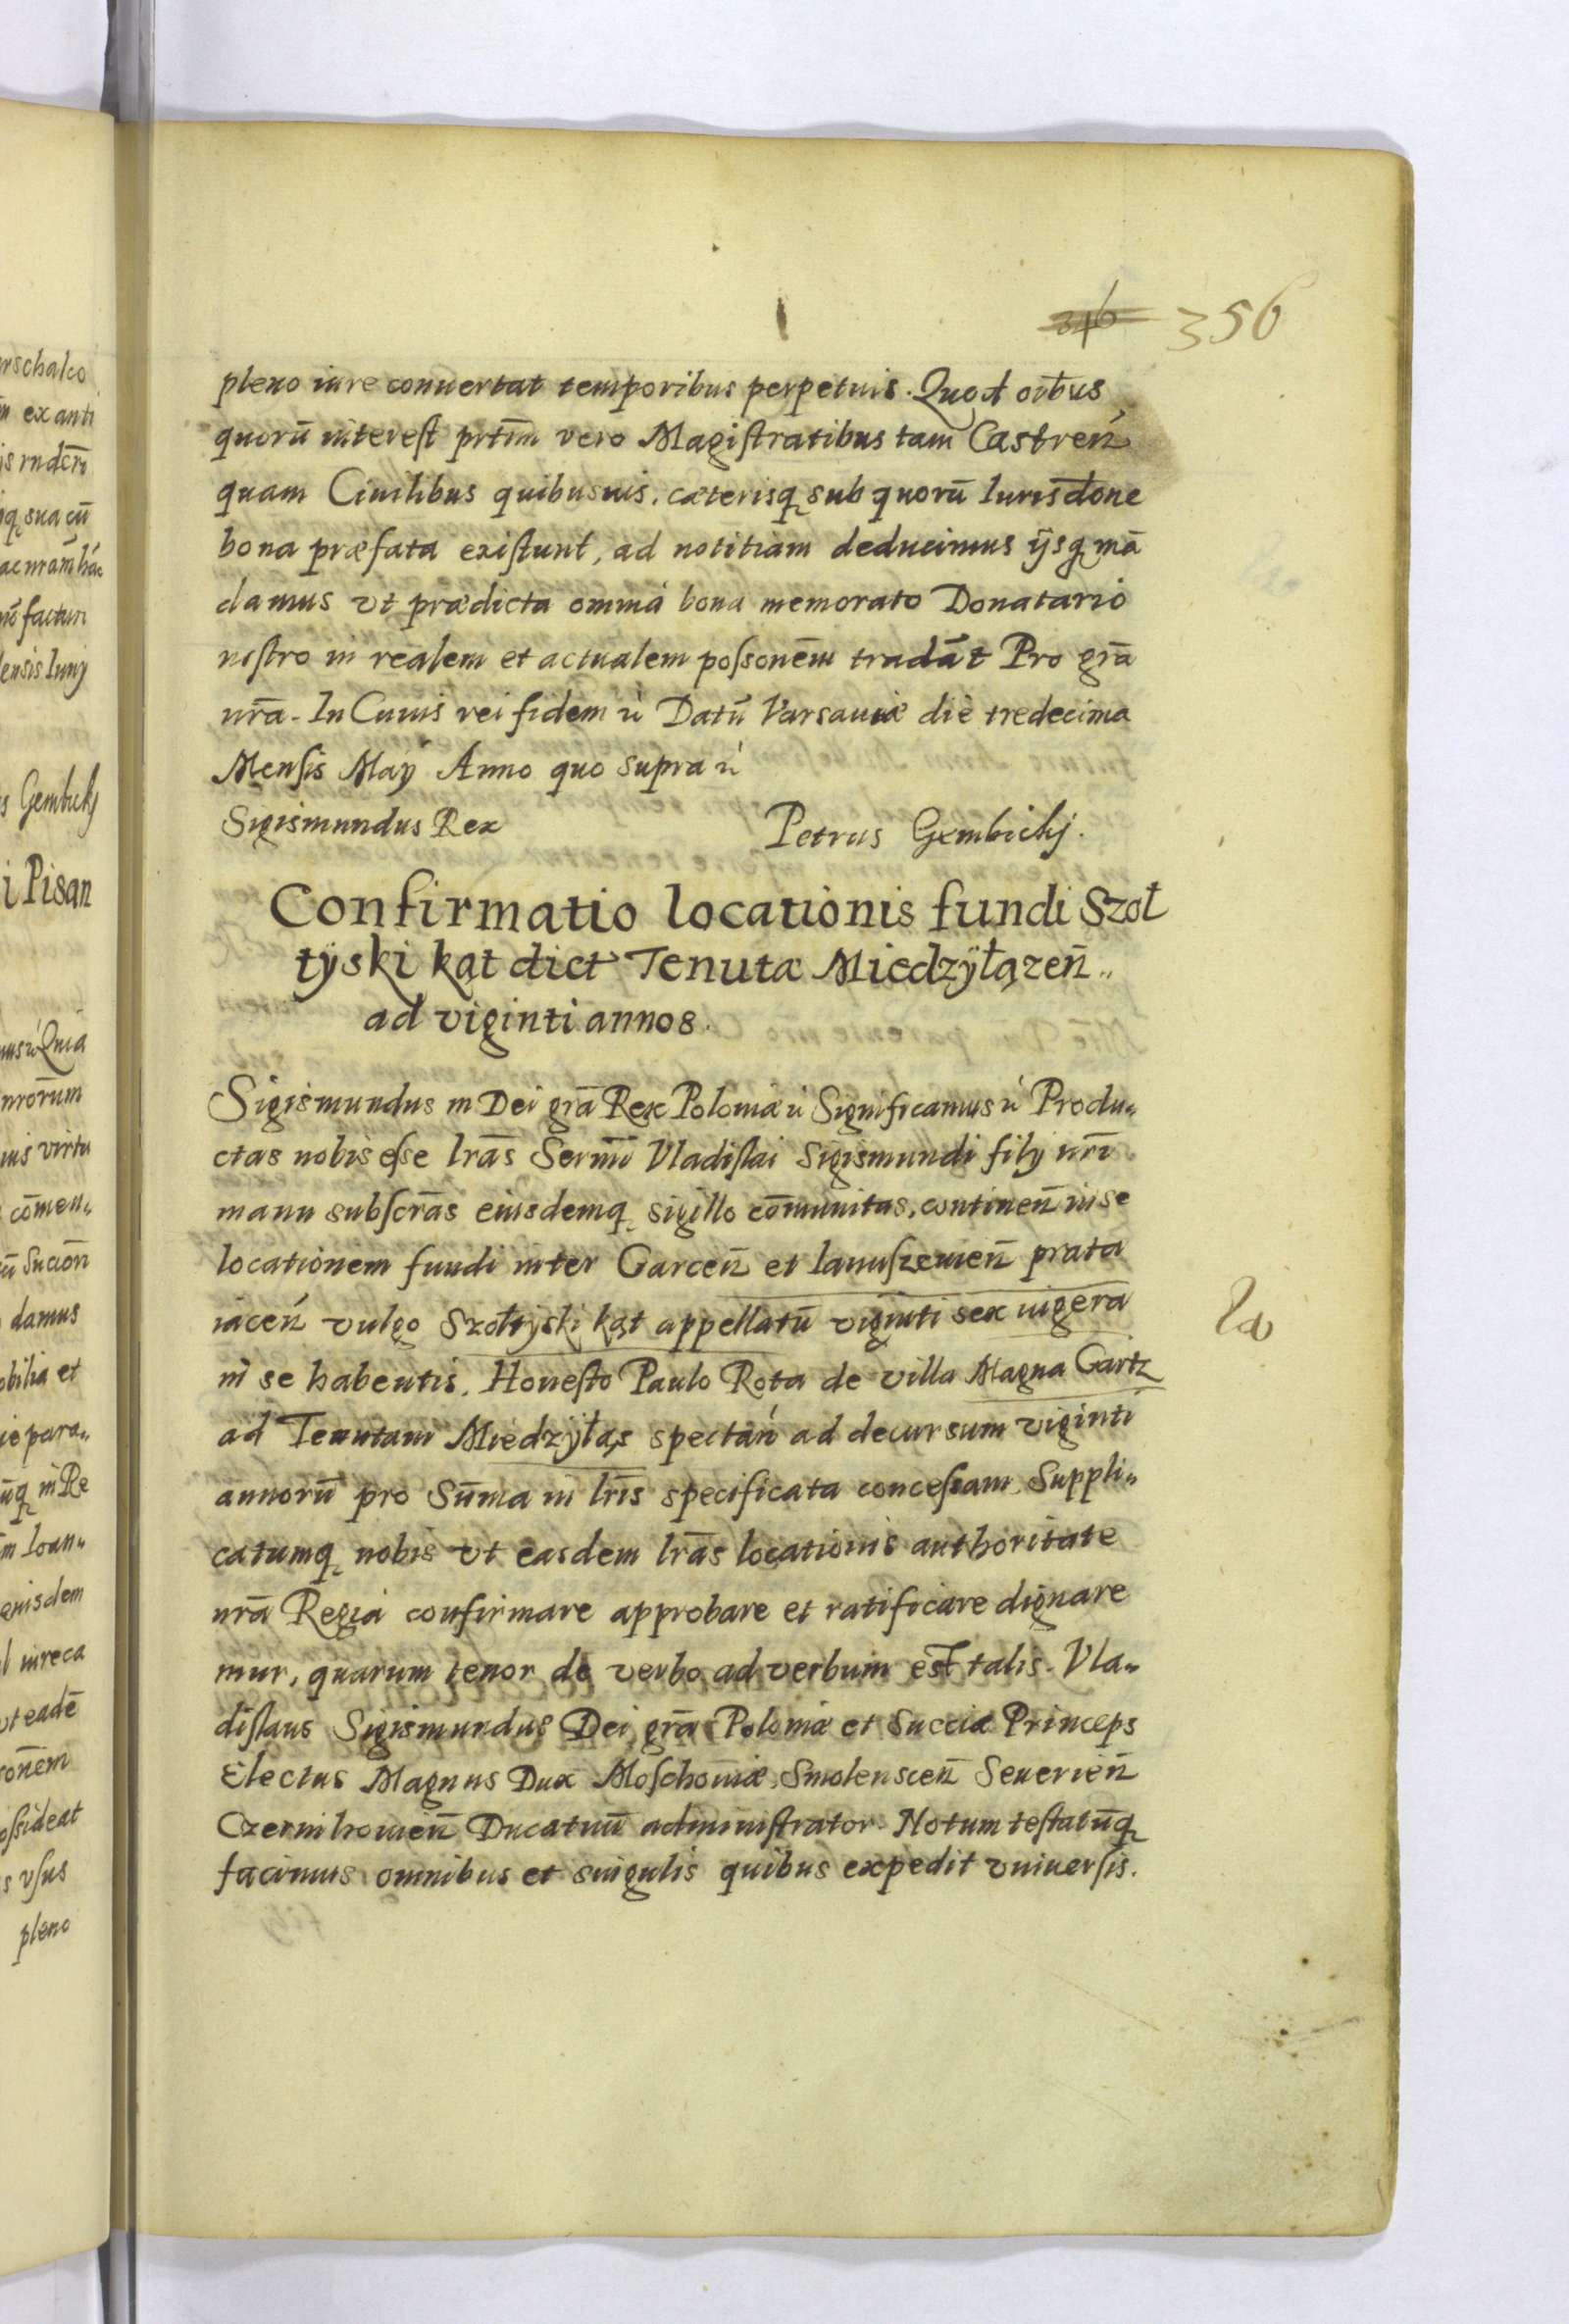 346 356
pleno iure conuertat temporibus perpetuis. Quod oībus
quorū interest prtīm vero Magistratibus tam Castreń
quam Ciuilibus quibusuis, cæterisq sub quorū Iurisdone
bona præfata existunt, ad notitiam deducimus ijsq mā
damus vt prædicta omnia bona memorato Donatario
nostro in realem et actualem possonēm tradāt Pro grā
nrā. In Cuius rei fidem ù Datū Varsauiæ die tredecima
Mensis Maij Anno quo supra ù
Sigismundus Rex Petrus Gembickj.
Confirmatio locationis fundi Szoł
tÿski kąt dict Tenutæ Miedzÿłązen̄
ad viginti annos.
Sigismundus in Dei grā Rex Poloniæ ù Significamus ù Produ„
ctas nobis esse lrās Sermī Vladislai Sigismundi filij nrī
manu subscrās eiusdemq sigillo cōmunitas, continen̄ in se
locationem fundi inter Garcen̄ et Ianuszewien̄ prata
iaceń vulgo Szołtyski kąt appellatū viginti sex iugera
in se habentis, Honesto Paulo Rota de villa Magna Gartz
ad Tenutam Miedzÿłąs spectań ad decursum viginti
annorū pro Sūma in lrīs specificata concessam, Suppli„
catumq nobis vt easdem lrās locationis authoritate
nrā Regia confirmare approbare et ratificare dignare
mur, quarum tenor de verbo ad verbum est talis. Vla„
dislaus Sigismundus Dei grā Poloniæ et Sueciæ Princeps
Electus Magnus Dux Moschouiæ, Smolenscen̄ Seuerien̄
Czernihouien̄ Ducatuū administrator. Notum testatūq
facimus omnibus et singulis quibus expedit vniuersis.